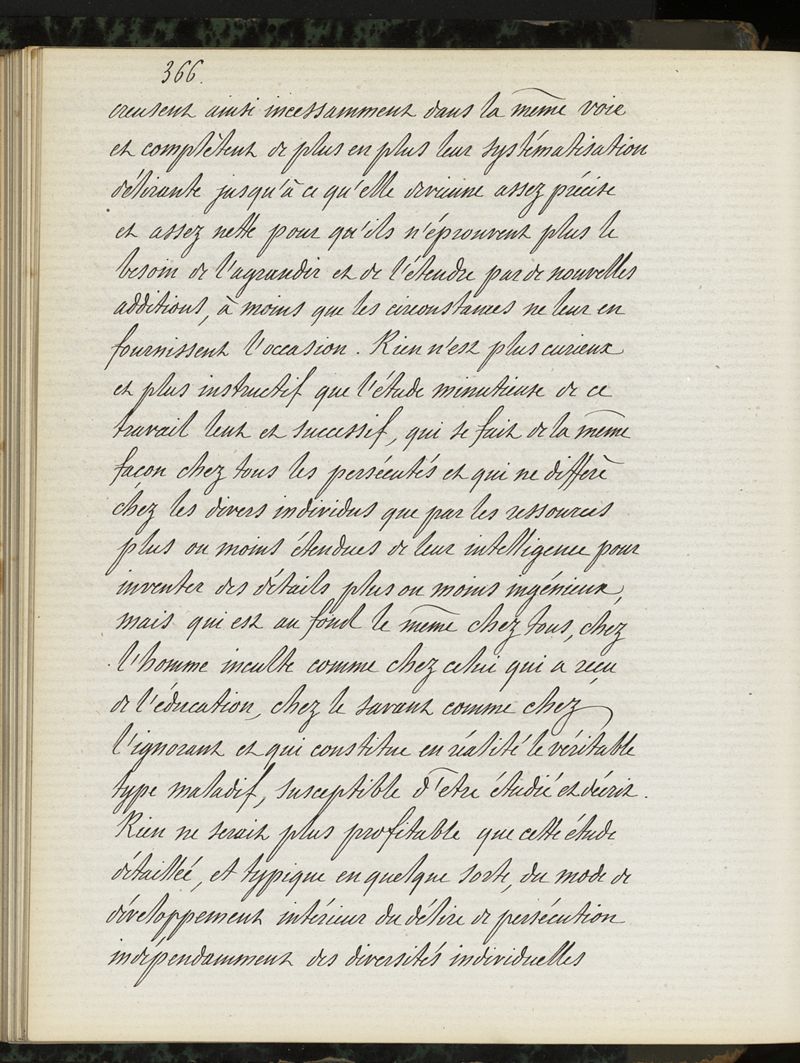 366.
creusent ainsi incessamment dans la même voie
et complètent de plus en plus leur systématisation
délirante jusqu'à ce qu'elle devienne assez précise
et assez nette pour qu'ils n'éprouvent plus le
besoin de l'agrandir et de l'étendre par de nouvelles
additions, à moins que les circonstances ne leur en
fournissent l'occasion. Rien n'est plus curieux
et plus instructif que l'étude minutieuse de ce
travail lent et successif, qui se fait de la même
façon chez tous les persécutés et qui ne diffère
chez les divers individus que par les ressources
plus ou moins étendues de leur intelligence pour
inventer des détails plus ou moins ingénieux,
mais qui est au fond le même chez tous, chez
l'homme inculte comme chez celui qui a reçu
de l'éducation, chez le savant comme chez
l'ignorant et qui constitue en réalité le véritable
type maladif, susceptible d'être étudié et décrit.
Rien ne serait plus profitable que cette étude
détaillée, et typique en quelque sorte, du mode de
développement intérieur du délire de persécution
indépendamment des diversités individuelles